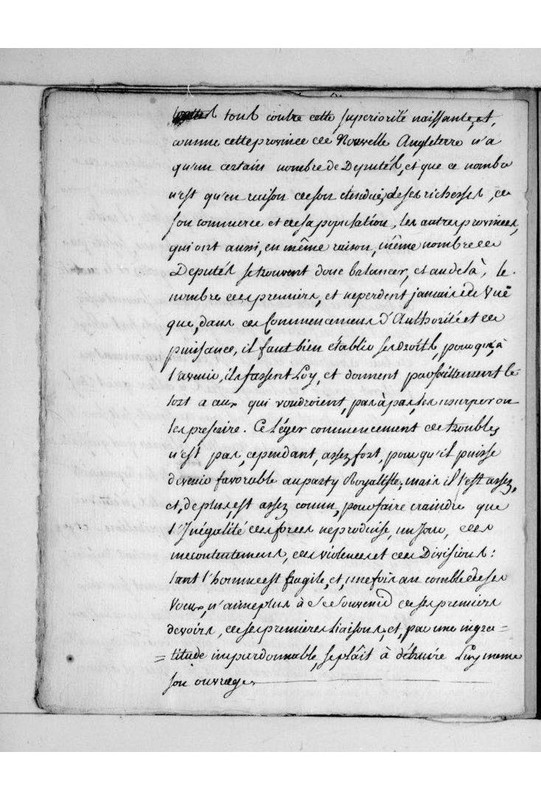 tout contre cette superiorité naissante, et
comme cette province de Nouvelle Angleterre n'a
qu'un certain nombre de Deputés, et que ce nombre
n'est qu'en raison de son etendue, de ses richesses, de
son commerce et de sa population, les autres provinces,
qui ont aussi, en même raison, même nombre de
Deputés se trouvent donc balancer, et au delà, le
nombre des premiers, et ne perdent jamais de vuë
que, dans ces Commencemens d'Authorité et de
puissance, il faut bien établir ses droits, pour qu'à
l'avenir, ils fassent Loy, et donnent parfaitement le
tort a aux qui voudroient, pas à pas, les usurper ou
les prescrire. Ce Léger commencement de troubles
n'est pas, cependant, assez fort, pour qu'il puisse
devenir favorable au party Royaliste, mais il l'est assez,
et, de plus est assez connu, pour faire craindre que
l'Inégalité des forces ne produise, un Jour, des
mécontentemens, des violences et des Divisions:
tant l'homme est fragile, et, une fois au comble de ses
Voeux, n'aime plus à se Souvenir de ses premiers
devoirs, de ses premieres liaisons, et, par une ingra=
=titude impardonnable, se plâit à détruire Luy meme
son ouvrage.